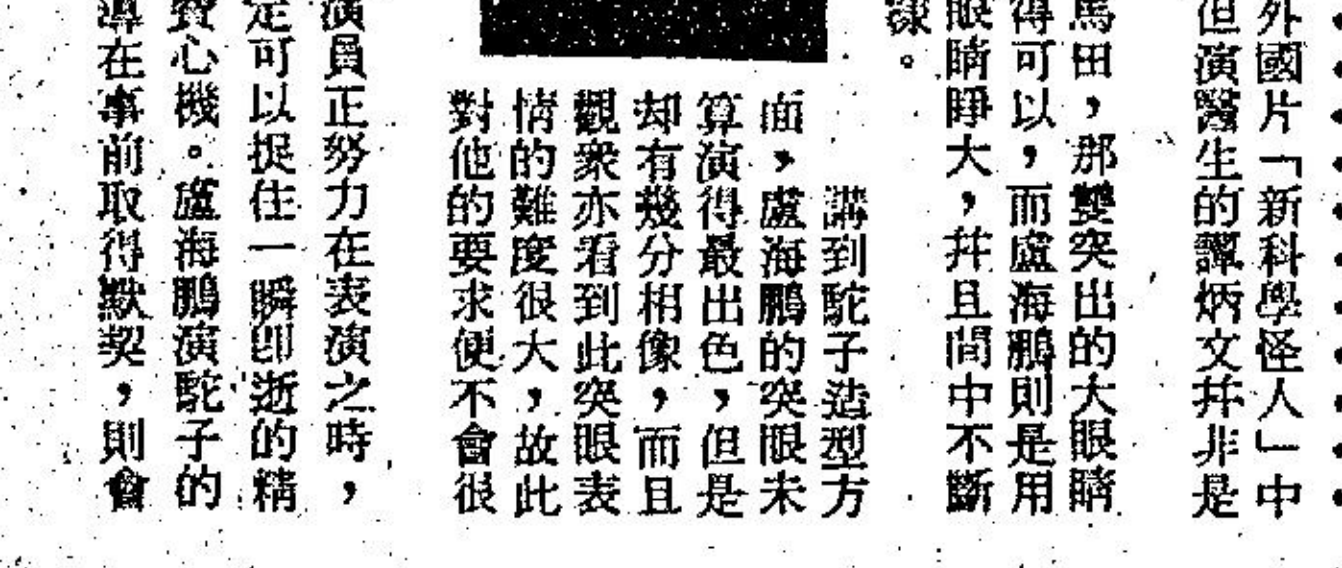 外國片「新科學怪人」中
但演醫生的譚炳文幷非是
馬田，那雙突出的大眼睛
得可以，而盧海鵬則是用
眼睛睜大，幷且間中不斷
。
講到駝子造型方
面，盧海鵬的突眼未
算演得最出色，但是
却有幾分相像，而且
觀衆亦看到此突眼表
情的難度很大，故此
對他的要求便不會很
演員正努力在表演之時，
定可以捉住一瞬即逝的精
費心機。盧海鵬演駝子的
導在事前取得默契，則會